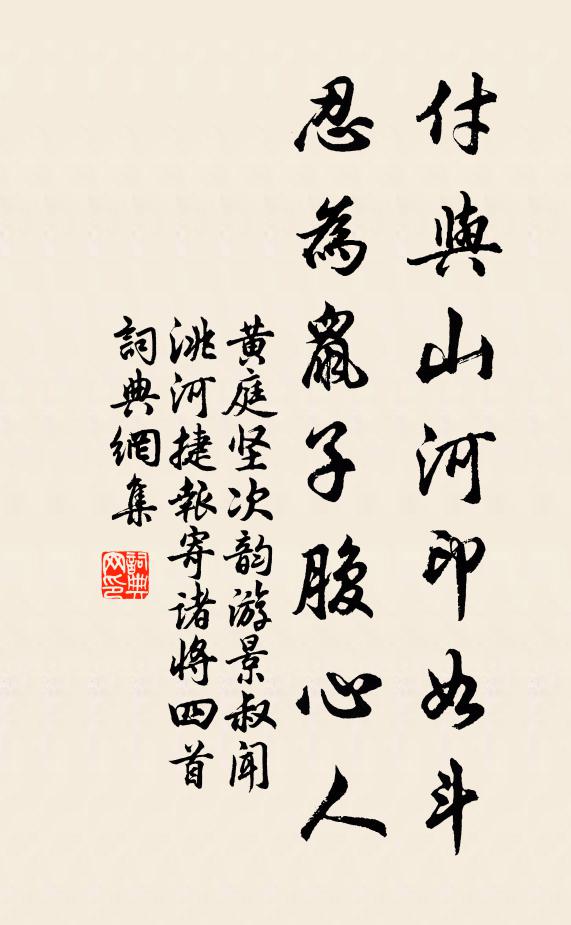 付與山河印如斗
忍為鼠子腹心人
黄庭坚次韵游景叔闻
洮河捷報寄诸将四首
詞典網集
詞典
网印